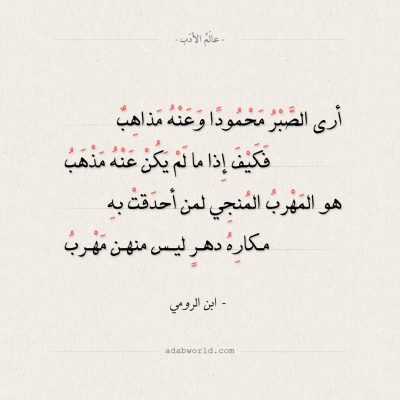 - عالَمُ الأدَب -
أرى الصَّبْرَ مَحْمُودًا وَعَنْهُ مَذاهِبٌ
فَكَيْفَ إِذا ما لَمْ يَكُنْ عَنْهُ مَذْهَبُ
هو المَهْربُ المُنجِي لمن أحدَقتْ بهِ
مكارِهُ دهرٍ ليس منهن مَهْربُ
- ابن الرومي
adabworld.com